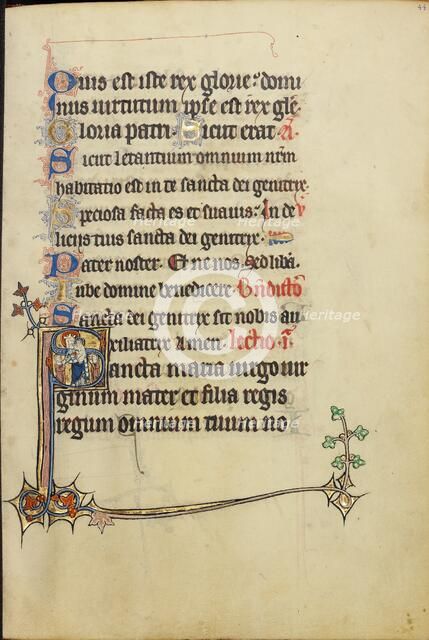 44
Quis est iste rex glorie: domi
nus uirtutum ipse est rex glē.
Gloria patri. Sicut erat. A.
Sicut letantium omnium nr̄m
habitatio est in te sancta dei genitrix.
Speciosa facta es et suauis: In de V
licijs tuis sancta dei genitrix.
Pater noster. Et ne nos. Sed liba.
Iube domine benedicere. Bn̄dictō
Sancta dei genitrix sit nobis au
xiliatrix Amen. lectio i.
Sancta maria uirgo uir
ginum mater et filia regis
regum omnium tuum no
Heritage
Heritage
Heritage
Heritage
Heritage